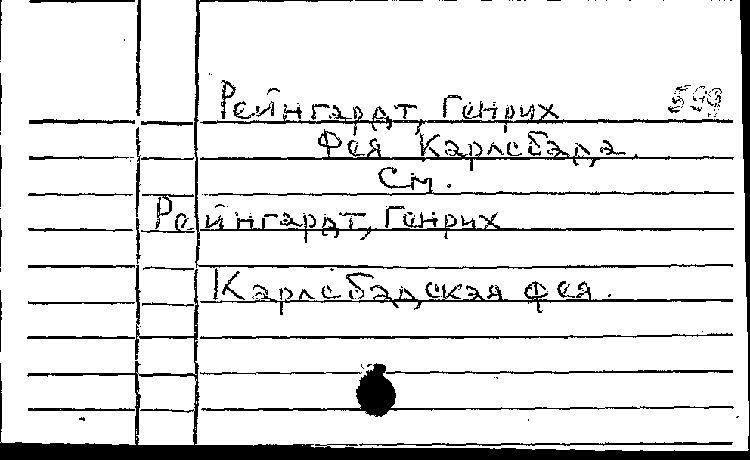 Рейнгардт, Генрих 599
Фея Карлсбада.
См.
Рейнгардт, Генрих
Карлсбадская фея.